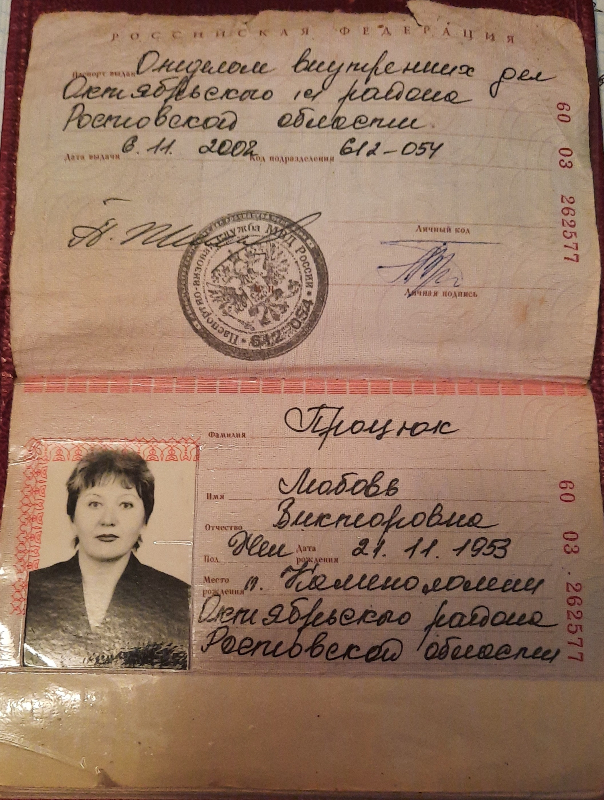 РОССИЙСКАЯ ФЕДЕРАЦИЯ
Паспорт выдан Отделом внутренних дел
Октябрьского района
Ростовской области.
Дата выдачи 6.11.2002 Код подразделения 612-054
60 03 262577
Паспортно-визовая служба МВД России
612-054
Личный код
Личная подпись
Фамилия Процюк
Имя Любовь
Отчество Викторовна
Пол Жен Дата рождения 21.11.1953
Место рождения п. Каменоломни
Октябрьского района
Ростовской области
60 03 262577